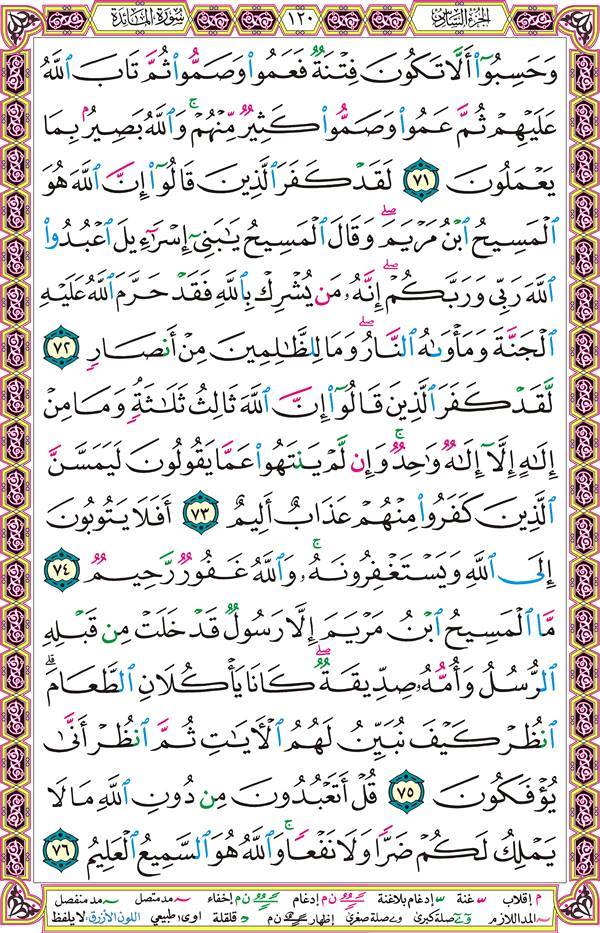 الجزء السادس ١٢٠ سورة المائدة
وَحَسِبُوٓا۟ أَلَّا تَكُونَ فِتْنَةٌ فَعَمُوا۟ وَصَمُّوا۟ ثُمَّ تَابَ ٱللَّهُ
عَلَيْهِمْ ثُمَّ عَمُوا۟ وَصَمُّوا۟ كَثِيرٌ مِّنْهُمْ ۚ وَٱللَّهُ بَصِيرٌۢ بِمَا
يَعْمَلُونَ ٧١ لَقَدْ كَفَرَ ٱلَّذِينَ قَالُوٓا۟ إِنَّ ٱللَّهَ هُوَ
ٱلْمَسِيحُ ٱبْنُ مَرْيَمَ ۖ وَقَالَ ٱلْمَسِيحُ يَٰبَنِىٓ إِسْرَٰٓءِيلَ ٱعْبُدُوا۟
ٱللَّهَ رَبِّى وَرَبَّكُمْ ۖ إِنَّهُۥ مَن يُشْرِكْ بِٱللَّهِ فَقَدْ حَرَّمَ ٱللَّهُ عَلَيْهِ
ٱلْجَنَّةَ وَمَأْوَىٰهُ ٱلنَّارُ ۖ وَمَا لِلظَّٰلِمِينَ مِنْ أَنصَارٍ ٧٢
لَّقَدْ كَفَرَ ٱلَّذِينَ قَالُوٓا۟ إِنَّ ٱللَّهَ ثَالِثُ ثَلَٰثَةٍ ۘ وَمَا مِنْ
إِلَٰهٍ إِلَّآ إِلَٰهٌ وَٰحِدٌ ۚ وَإِن لَّمْ يَنتَهُوا۟ عَمَّا يَقُولُونَ لَيَمَسَّنَّ
ٱلَّذِينَ كَفَرُوا۟ مِنْهُمْ عَذَابٌ أَلِيمٌ ٧٣ أَفَلَا يَتُوبُونَ
إِلَى ٱللَّهِ وَيَسْتَغْفِرُونَهُۥ ۚ وَٱللَّهُ غَفُورٌ رَّحِيمٌ ٧٤
مَّا ٱلْمَسِيحُ ٱبْنُ مَرْيَمَ إِلَّا رَسُولٌ قَدْ خَلَتْ مِن قَبْلِهِ
ٱلرُّسُلُ وَأُمُّهُۥ صِدِّيقَةٌ ۖ كَانَا يَأْكُلَانِ ٱلطَّعَامَ ۗ
ٱنظُرْ كَيْفَ نُبَيِّنُ لَهُمُ ٱلْءَايَٰتِ ثُمَّ ٱنظُرْ أَنَّىٰ
يُؤْفَكُونَ ٧٥ قُلْ أَتَعْبُدُونَ مِن دُونِ ٱللَّهِ مَا لَا
يَمْلِكُ لَكُمْ ضَرًّا وَلَا نَفْعًا ۚ وَٱللَّهُ هُوَ ٱلسَّمِيعُ ٱلْعَلِيمُ ٧٦
م إقلاب غنة إدغام بلاغنة ن م إدغام ن م إخفاء مد متصل مد منفصل
المد اللازم صلة كبرى صلة صغرى إظهار ن م قلقلة اوى طبيعي اللون الأزرق: لا يلفظ